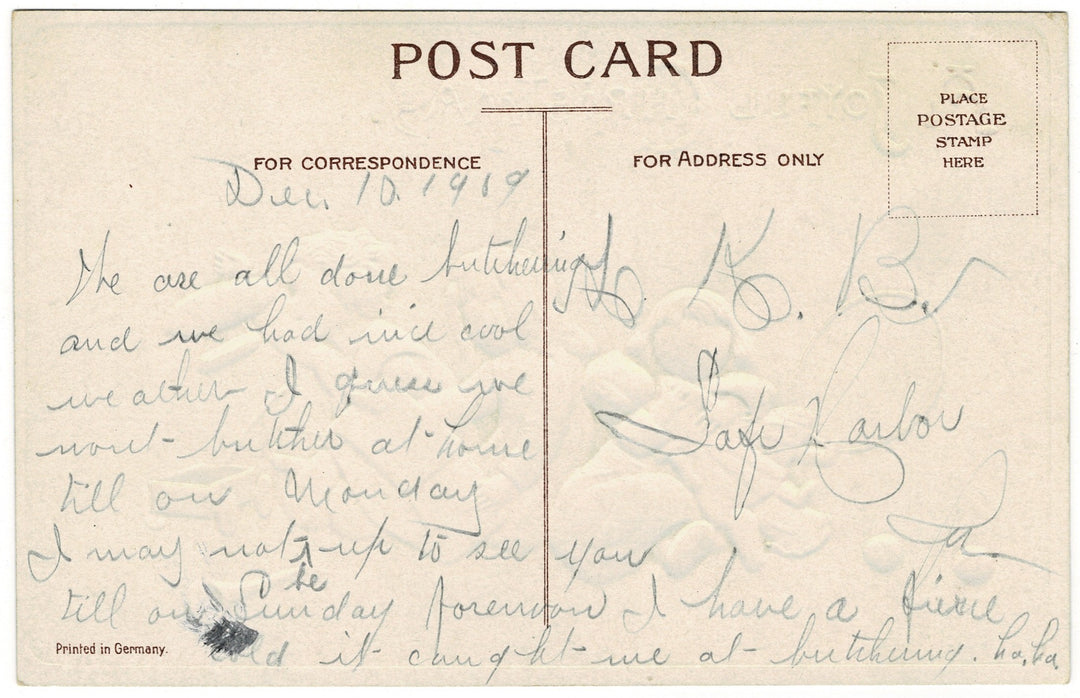 POST CARD
PLACE
POSTAGE
STAMP
HERE
FOR CORRESPONDENCE
Dec. 10. 1919
We are all done butchering
and we had nice cool
weather I guess we
wont butcher at home
till on Monday
I may not be up to see you
till on Sunday forenoon I have a fierce
cold it caught me at butchering. ha, ha.
Printed in Germany.
FOR ADDRESS ONLY
H. K. B.
Safe Harbor
Pa